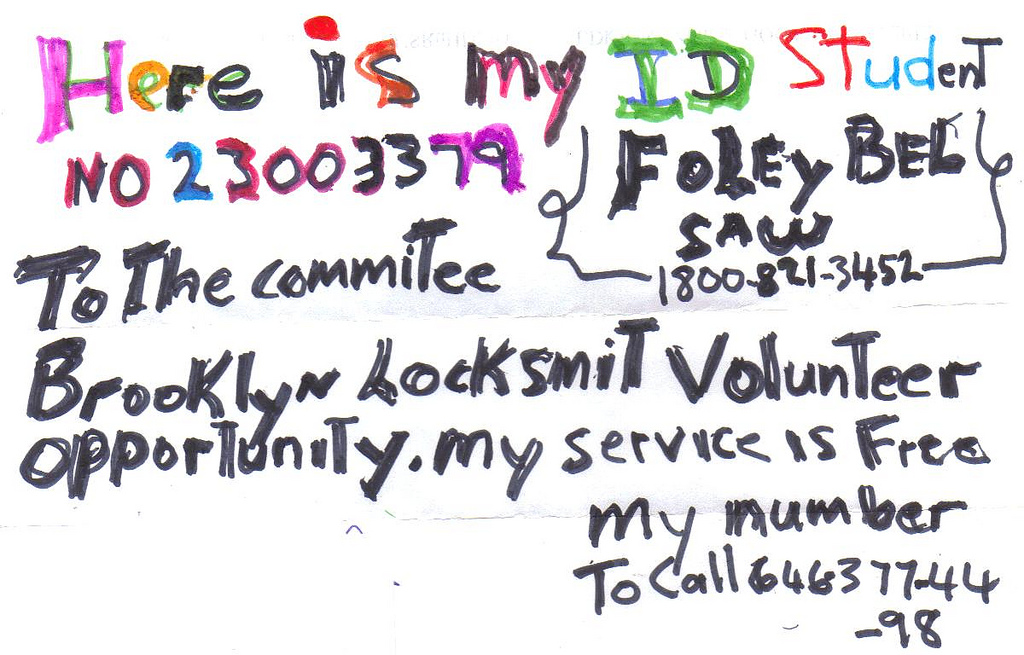 Here is my ID Student
NO 23003379
FOLEY BEL
SAW
1800-821-3452
To The commitee
Brooklyn Locksmit Volunteer
opportunity. my service is Free
my mumber
To Call 646377-44
-98